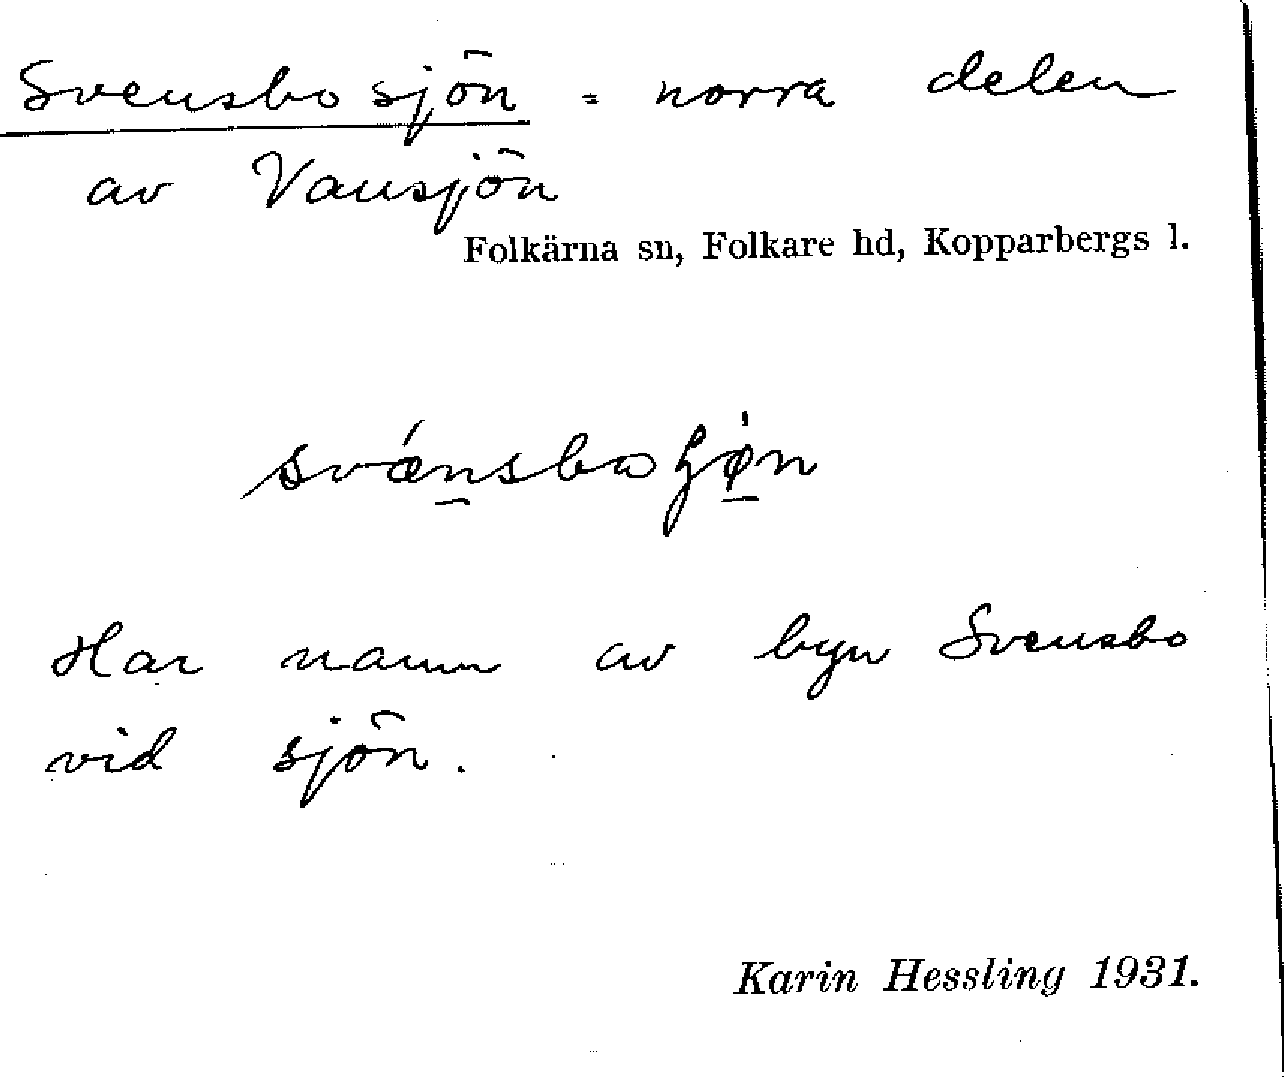 Svensbosjön = norra delen
av Vansjön
Folkärna sn, Folkare hd, Kopparbergs l.
Har namn av byn Svensbo
vid sjön.
Karin Hessling 1931.